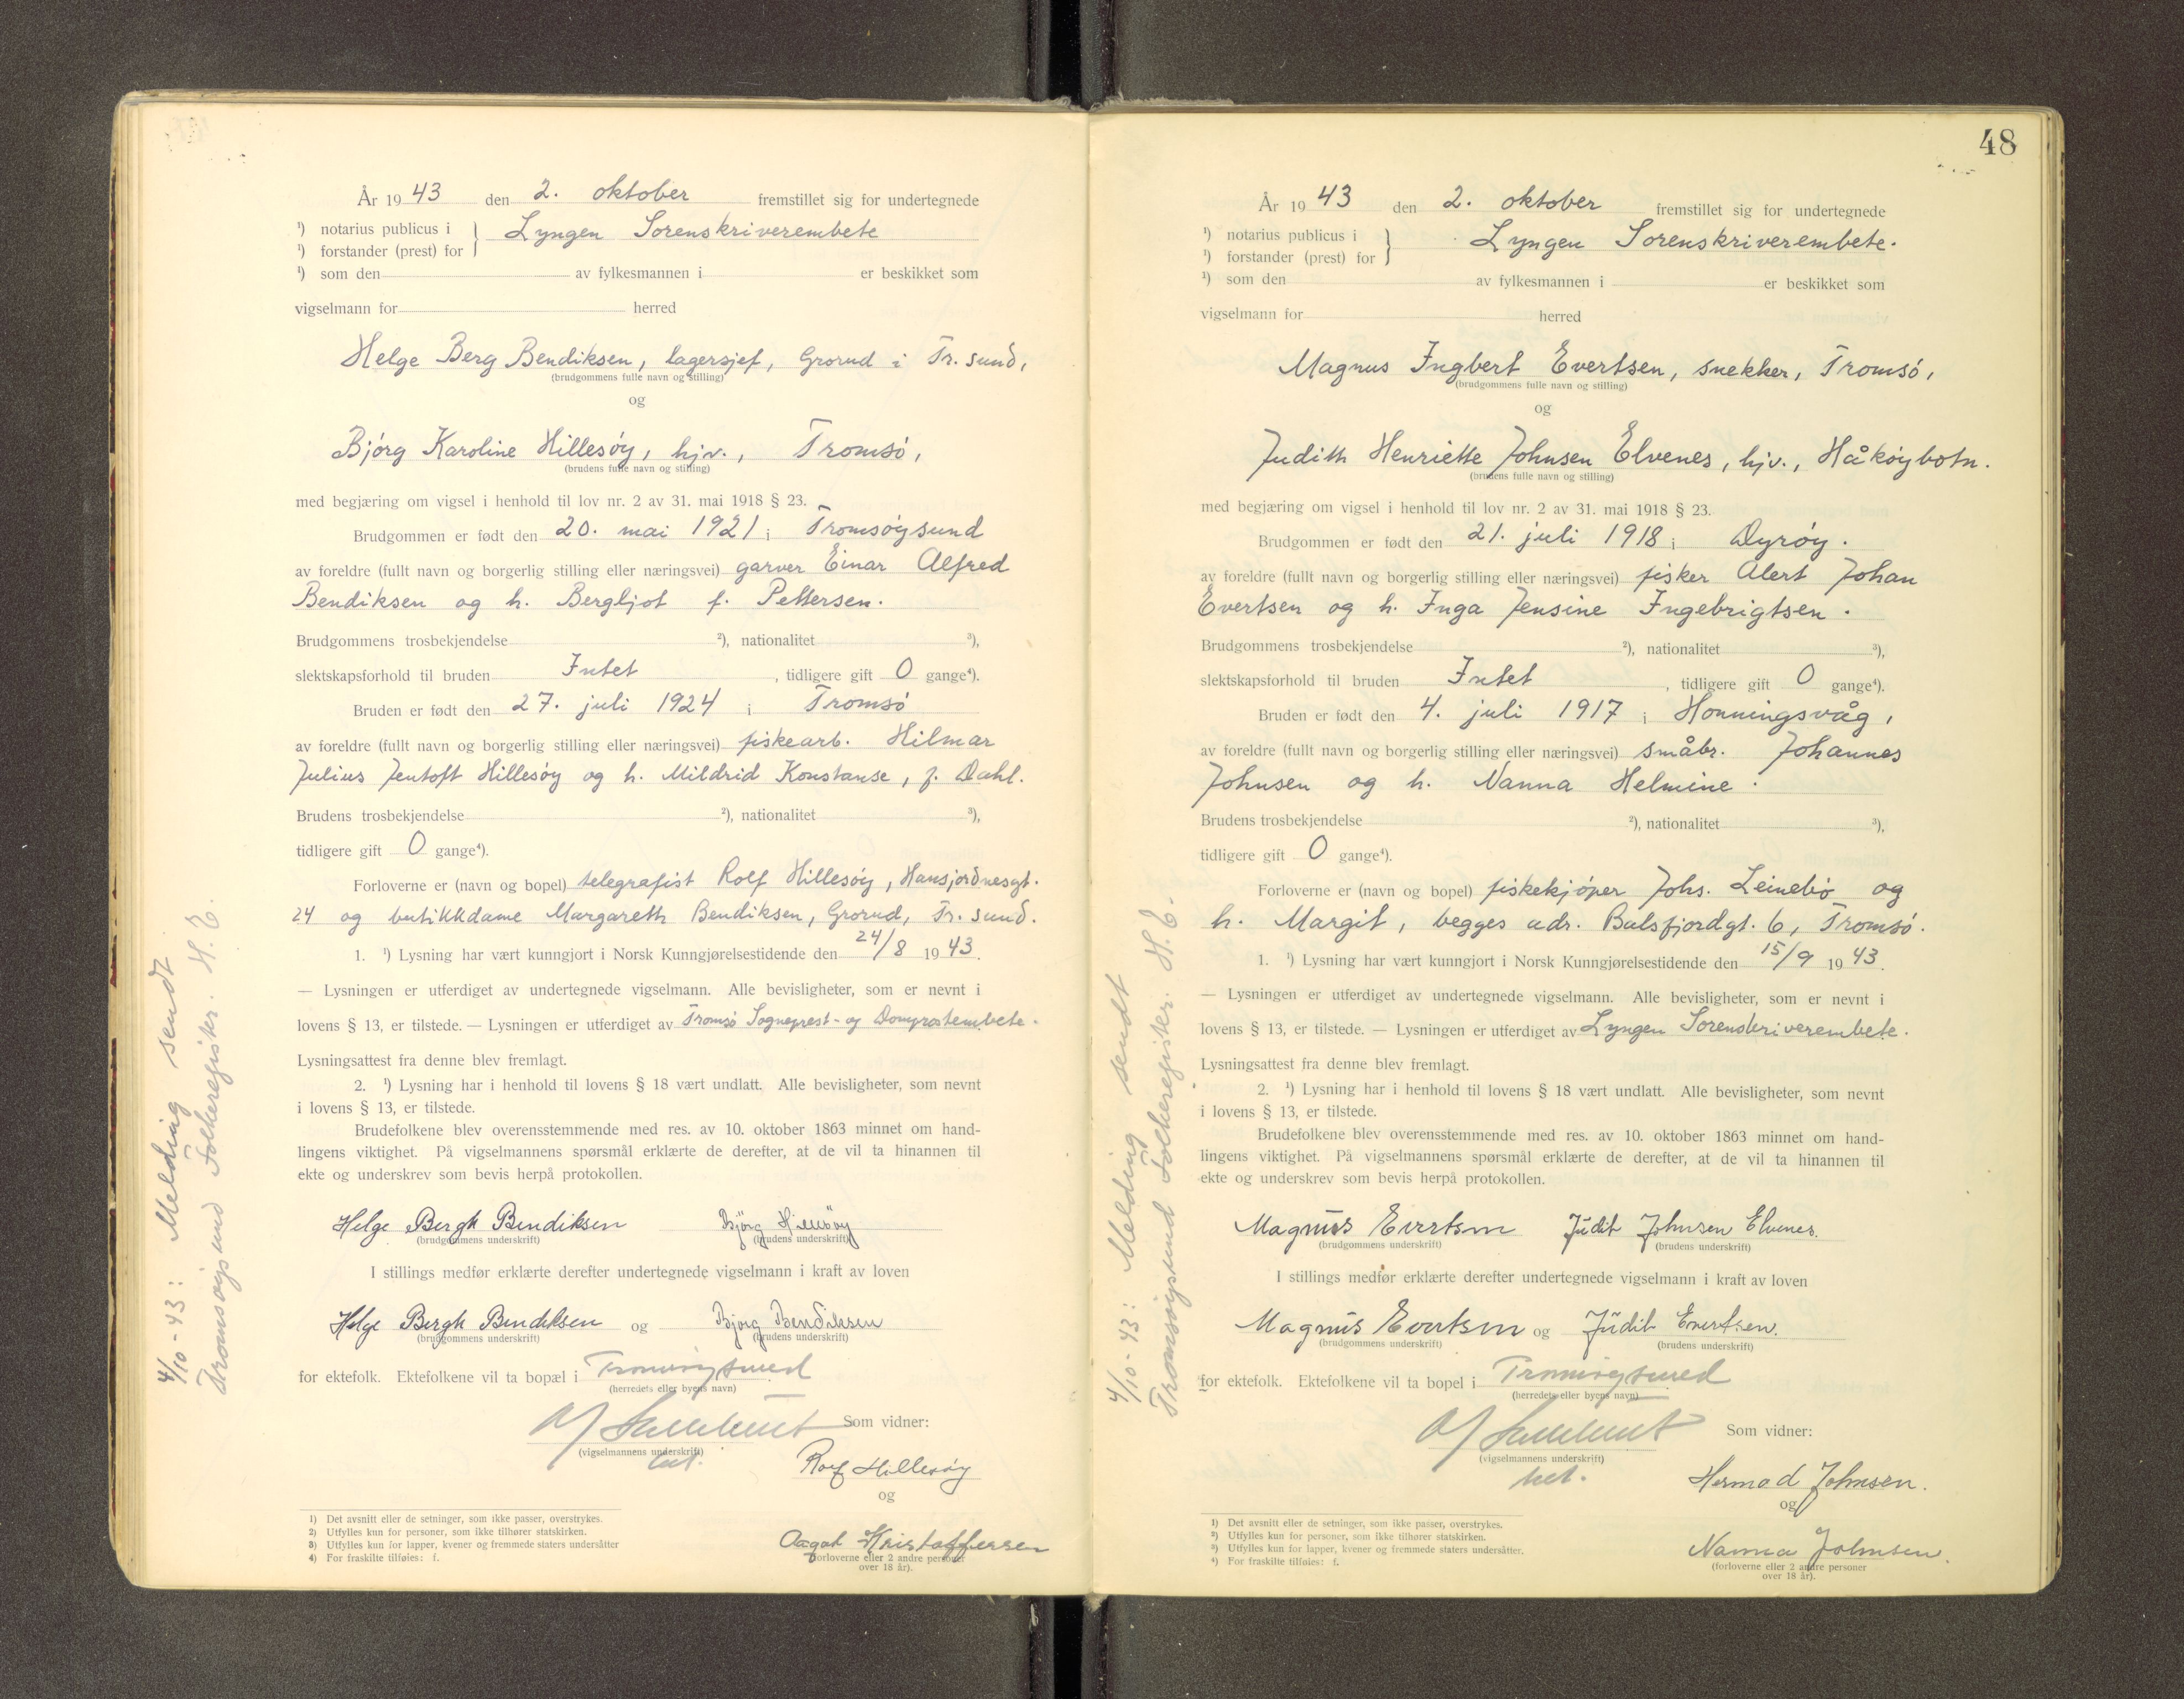 År 1943 den 2. oktober fremstillet sig for undertegnede
¹) notarius publicus i } Lyngen Sorenskriverembete
¹) forstander (prest) for
¹) som den av fylkesmannen i er beskikket som
vigselmann for herred
Helge Berg Bendiksen, lagersjef, Grorud i Tr.sund,
(brudgommens fulle navn og stilling)
og
Bjórg Karoline Hillesóy, hjv., Tromsó,
(brudens fulle navn og stilling)
med begjæring om vigsel i henhold til lov nr. 2 av 31. mai 1918 § 23.
Brudgommen er født den 20. mai 1921 i Tromsóysund
av foreldre (fullt navn og borgerlig stilling eller næringsvei) garver Einar Alfred
Bendiksen og h. Bergljot f. Pettersen.
Brudgommens trosbekjendelse ²), nationalitet ³),
slektskapsforhold til bruden Intet, tidligere gift 0 gange⁴).
Bruden er født den 27. juli 1924 i Tromsó
av foreldre (fullt navn og borgerlig stilling eller næringsvei) fiskearb. Hilmar
Julius Jentoft Hillesóy og h. Mildrid Konstanse, f. Dahl.
Brudens trosbekjendelse ²), nationalitet ³),
tidligere gift 0 gange⁴).
Forloverne er (navn og bopel) telegrafist Rolf Hillesóy, Hansjordnesgt.
24 og butikkdame Margareth Bendiksen, Grorud, Tr.sund.
1. ¹) Lysning har vært kunngjort i Norsk Kunngjørelsestidende den 24/8 1943.
— Lysningen er utferdiget av undertegnede vigselmann. Alle bevisligheter, som er nevnt i
lovens § 13, er tilstede. — Lysningen er utferdiget av Tromsó Sogneprest- og Domprostembete.
Lysningsattest fra denne blev fremlagt.
2. ¹) Lysning har i henhold til lovens § 18 vært undlatt. Alle bevisligheter, som nevnt
i lovens § 13, er tilstede.
Brudefolkene blev overensstemmende med res. av 10. oktober 1863 minnet om hand-
lingens viktighet. På vigselmannens spørsmål erklærte de derefter, at de vil ta hinannen til
ekte og underskrev som bevis herpå protokollen.
Helge Bergh Bendiksen Bjórg Hillesöy
(brudgommens underskrift) (brudens underskrift)
I stillings medfør erklærte derefter undertegnede vigselmann i kraft av loven
Helge Bergh Bendiksen og Bjórg Bendiksen
(brudgommens underskrift) (brudens underskrift)
for ektefolk. Ektefolkene vil ta bopæl i Tromsöysund
(herredets eller byens navn)
Som vidner:
(vigselmannens underskrift)
Rolf Hillesóy
og
Aagot Kristoffersen
(forloverne eller 2 andre personer
over 18 år).
1) Det avsnitt eller de setninger, som ikke passer, overstrykes.
2) Utfylles kun for personer, som ikke tilhører statskirken.
3) Utfylles kun for lapper, kvener og fremmede staters undersåtter
4) For fraskilte tilføies: f.
4/10-43: Melding sendt
Tromsóysund Folkeregister. H.E.
48
År 1943 den 2. oktober fremstillet sig for undertegnede
¹) notarius publicus i } Lyngen Sorenskriverembete.
¹) forstander (prest) for
¹) som den av fylkesmannen i er beskikket som
vigselmann for herred
Magnus Ingbert Evertsen, snekker, Tromsó,
(brudgommens fulle navn og stilling)
og
Judith Henriette Johnsen Elvenes, hjv., Håkóybotn.
(brudens fulle navn og stilling)
med begjæring om vigsel i henhold til lov nr. 2 av 31. mai 1918 § 23.
Brudgommen er født den 21. juli 1918 i Dyróy.
av foreldre (fullt navn og borgerlig stilling eller næringsvei) fisker Alert Johan
Evertsen og h. Inga Jensine Ingebrigtsen.
Brudgommens trosbekjendelse ²), nationalitet ³),
slektskapsforhold til bruden Intet, tidligere gift 0 gange⁴).
Bruden er født den 4. juli 1917 i Honningsvåg,
av foreldre (fullt navn og borgerlig stilling eller næringsvei) småbr. Johannes
Johnsen og h. Nanna Helmine.
Brudens trosbekjendelse ²), nationalitet ³),
tidligere gift 0 gange⁴).
Forloverne er (navn og bopel) fiskekjóper Johs. Leinebó og
h. Margit, begges adr. Balsfjordgt. 6, Tromsó.
1. ¹) Lysning har vært kunngjort i Norsk Kunngjørelsestidende den 15/9 1943.
— Lysningen er utferdiget av undertegnede vigselmann. Alle bevisligheter, som er nevnt i
lovens § 13, er tilstede. — Lysningen er utferdiget av Lyngen Sorenskriverembete.
Lysningsattest fra denne blev fremlagt.
2. ¹) Lysning har i henhold til lovens § 18 vært undlatt. Alle bevisligheter, som nevnt
i lovens § 13, er tilstede.
Brudefolkene blev overensstemmende med res. av 10. oktober 1863 minnet om hand-
lingens viktighet. På vigselmannens spørsmål erklærte de derefter, at de vil ta hinannen til
ekte og underskrev som bevis herpå protokollen.
Magnus Evertsen Judit Johnsen Elvenes.
(brudgommens underskrift) (brudens underskrift)
I stillings medfør erklærte derefter undertegnede vigselmann i kraft av loven
Magnus Evertsen og Judit Evertsen.
(brudgommens underskrift) (brudens underskrift)
for ektefolk. Ektefolkene vil ta bopel i Tromsöysund
(herredets eller byens navn)
Som vidner:
(vigselmannens underskrift)
Hermod Johnsen.
og
Nanna Johnsen.
(forloverne eller 2 andre personer
over 18 år).
1) Det avsnitt eller de setninger, som ikke passer, overstrykes.
2) Utfylles kun for personer, som ikke tilhører statskirken.
3) Utfylles kun for lapper, kvener og fremmede staters undersåtter.
4) For fraskilte tilføies: f.
4/10-43: Melding sendt
Tromsóysund Folkeregister. H.E.